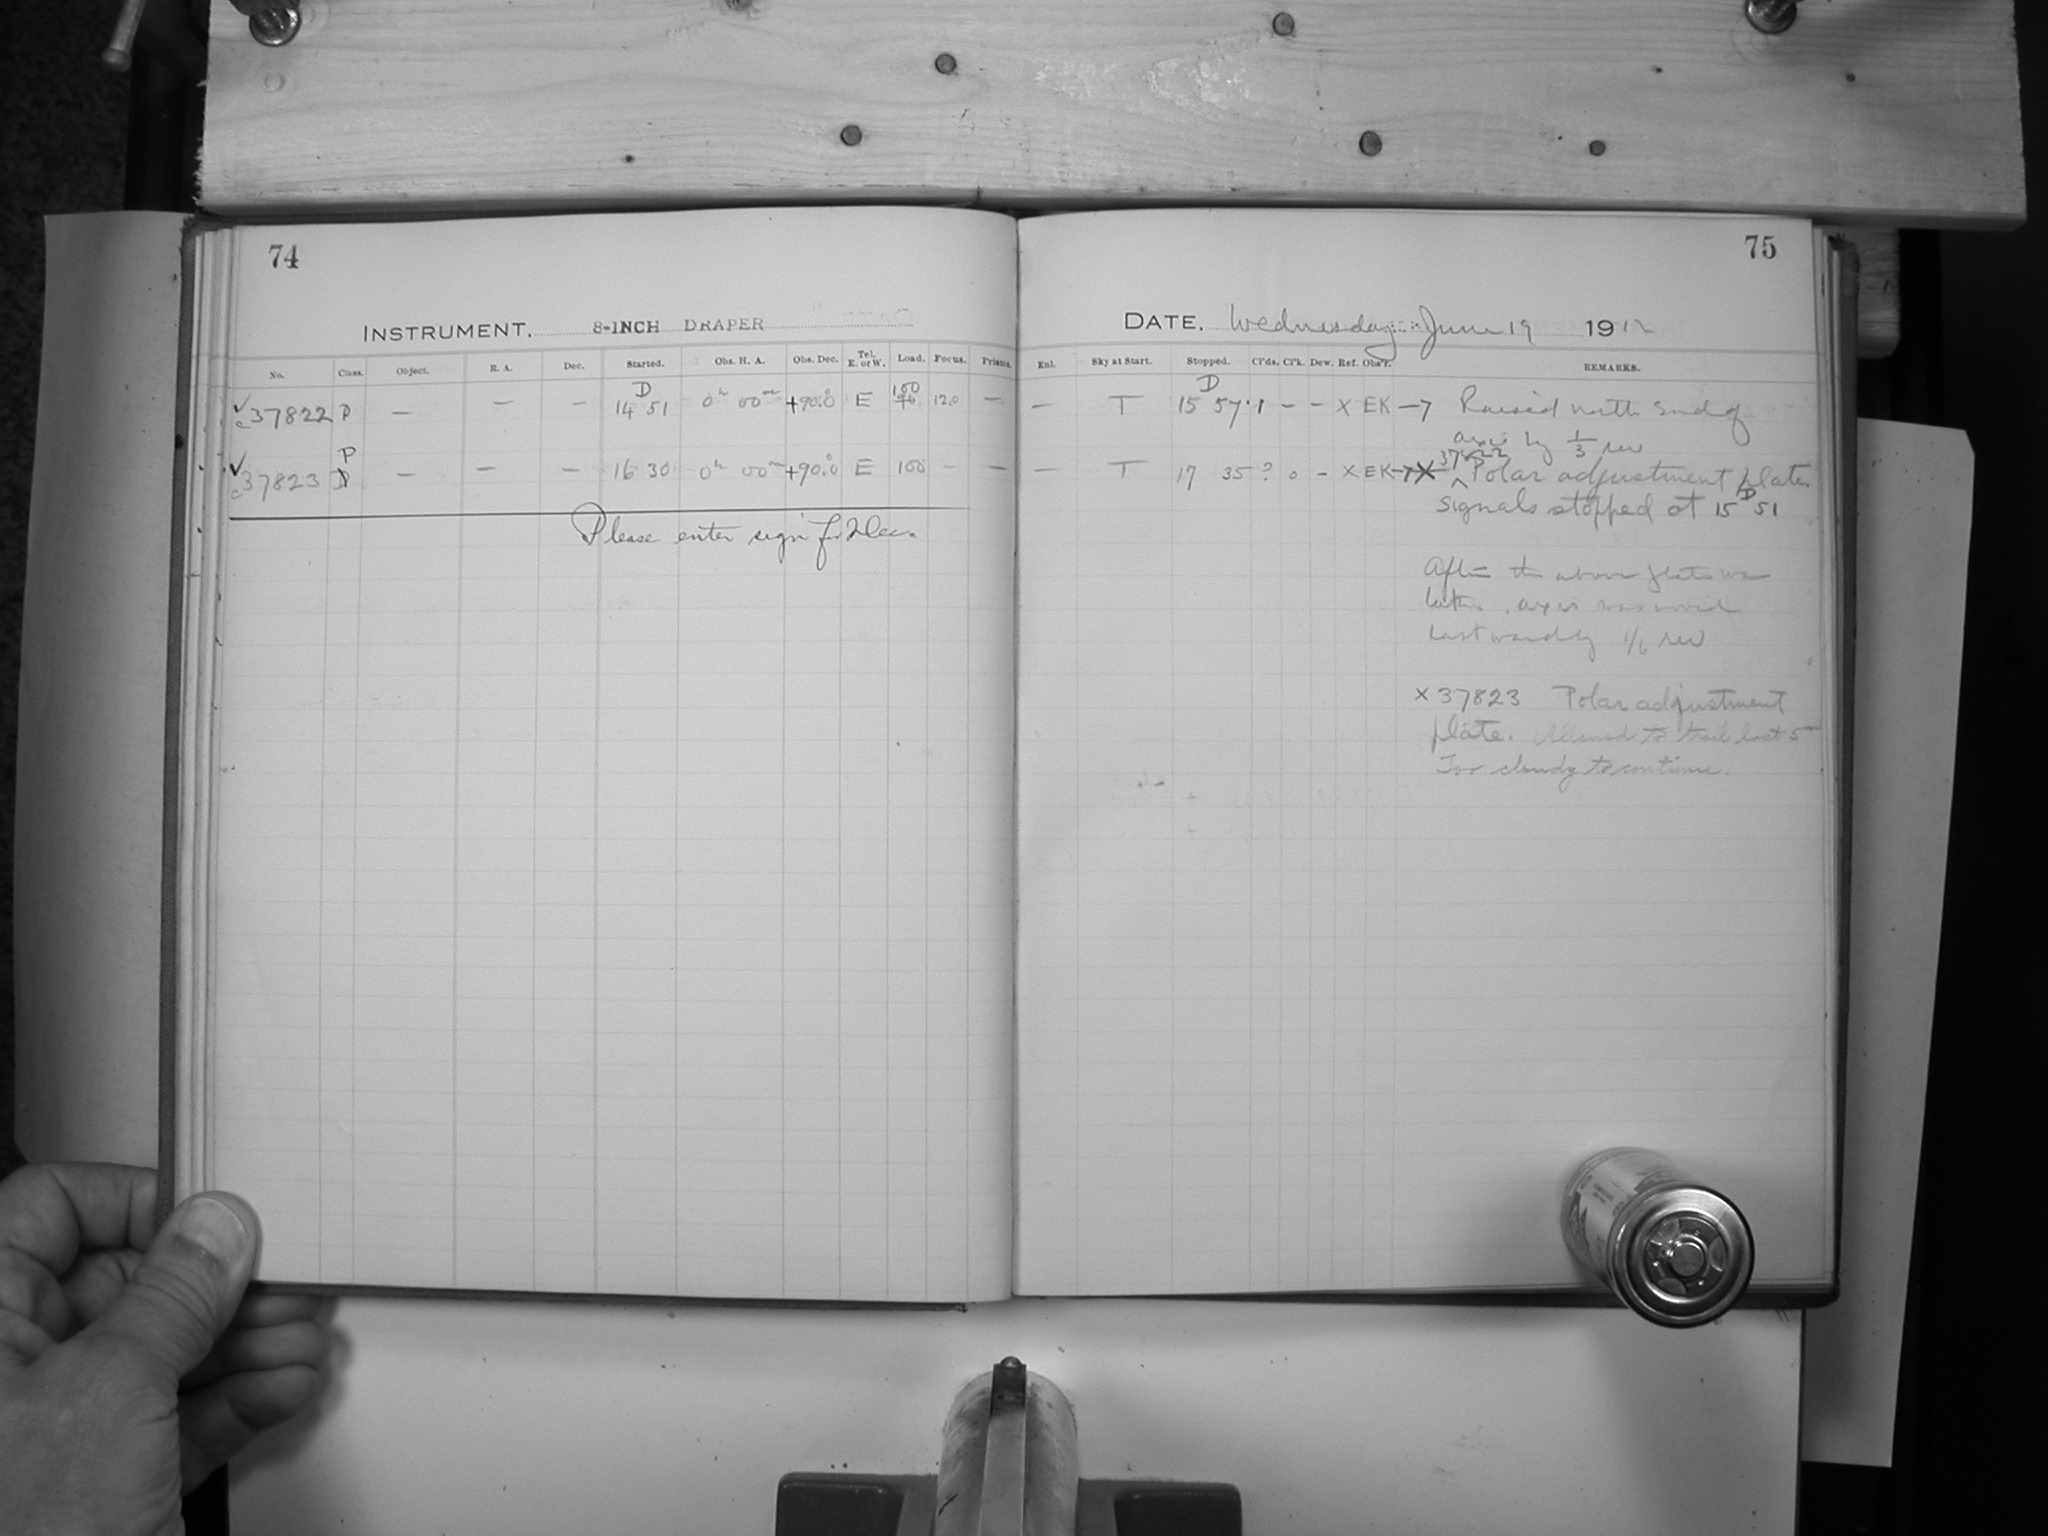 74
INSTRUMENT. 8-INCH DRAPER
No. Class. Object. R. A. Dec. Started. Obs. H. A. Obs. Dec. Tel. E. or W. Load. Focus. Prisms.
✓ c 37822 P — — — D 14 51 0h 00m +90.0° E 100 12.0 —
✓ c 37823 P — — — 16 30 0h 00m +90.0° E 100 – —
Please enter sign for Dec.
75
DATE. Wednesday June 19 1912
Enl. Sky at Start. Stopped. Cl'ds. Cl'k. Dew. Ref. Obs'r. REMARKS.
— T D 15 57 1 – – X EK → Raised north end of
axis by 1/3 rev
— T 17 35 ? 0 – X EK → X 37822 Polar adjustment plate.
signals stopped at 15 D 51
After the above plate was
taken, axis was moved
Eastward by 1/6 rev
X 37823 Polar adjustment
plate. Allowed to trail last 5m
Too cloudy to continue.